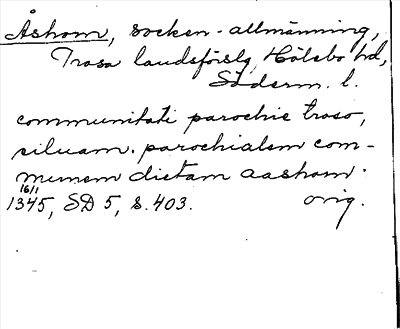 Åshom, socken-allmänning,
Trosa landsförslg, Hölebo hd,
Söderm. l.
communitati parochie troso,
siluam. parochialem com-
munem dictam aashom.
16/1
1345, SD 5, s. 403. orig.